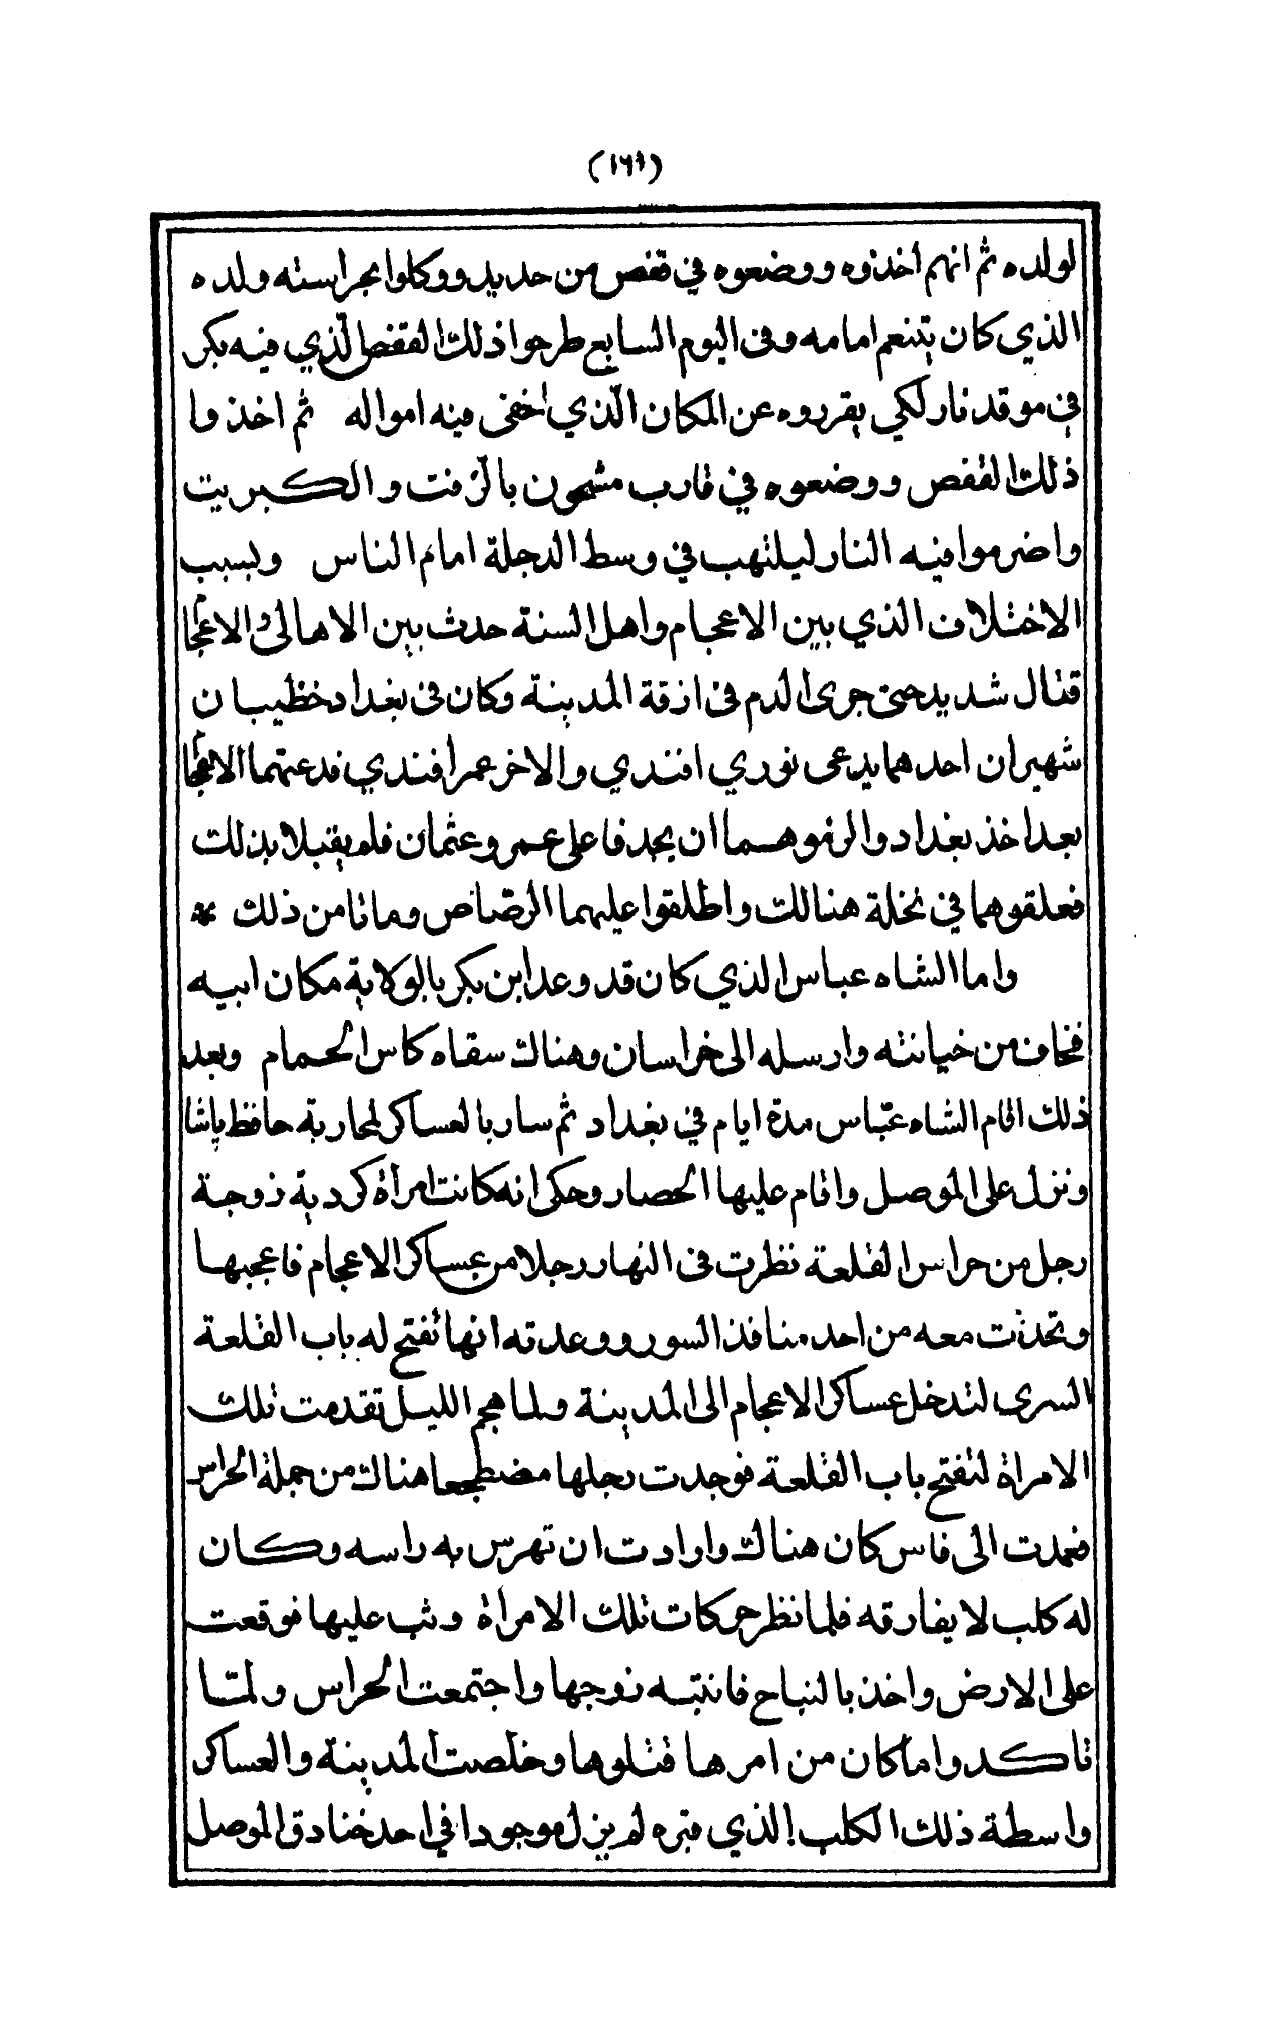 (١٦٩)
لولده ثم انهم اخذوه ووضعوه في قفص من حديد ووكلوا بحراسته ولده
الذي كان يتنعم امامه وفى اليوم السابع طرحوا ذلك القفص الّذي فيه بكر
في موقد نار لكي يقرروه عن المكان الّذي اخفى فيه امواله ثم اخذوا
ذلك القفص ووضعوه في قارب مشحون بالزّفت والكبريت
واضرموا فيه النار ليلتهب في وسط الدجلة امام الناس وبسبب
الاختلاف الذي بين الاعجام واهل السنة حدث بين الاهالى والاعجام
قتال شديد حتى جرى الدم فى ازقة المدينة وكان فى بغداد خطيبان
شهيران احدهما يدعى نوري افندي والاخر عمر افندي فدعتهما الاعجام
بعد اخذ بغداد والزموهما ان يجدفا على عمر وعثمان فلم يقبلا بذلك
فعلقوهما في نخلة هنالك واطلقوا عليهما الرّصاص وماتا من ذلك *
واما الشاه عباس الذي كان قد وعد ابن بكر بالولاية مكان ابيه
فخاف من خيانته وارسله الى خراسان وهناك سقاه كاس الحمام وبعد
ذلك اقام الشاه عبّاس مدة ايام في بغداد ثم سار بالعساكر لمحاربة حافظ باشا
ونزل على الموصل واقام عليها الحصار وحكى انه كانت امراة كردية زوجة
رجل من حراس القلعة نظرت فى النهار رجلا من عساكر الاعجام فاعجبها
وتحدثت معه من احد منافذ السور ووعدته انها تفتح له باب القلعة
السرى لتدخل عساكر الاعجام الى المدينة ولما هجم الليل تقدمت تلك
الامراة لتفتح باب القلعة فوجدت رجلها مضطجعا هناك من جملة الحراس
فعمدت الى فاس كان هناك وارادت ان تهرس به راسه وكان
له كلب لا يفارقه فلما نظر حركات تلك الامراة وثب عليها فوقعت
على الارض واخذ بالنباح فانتبه زوجها واجتمعت الحراس ولمّا
تاكدوا ما كان من امرها قتلوها وخلصت المدينة والعساكر
واسطة ذلك الكلب الذي قبره لم يزل موجودا في احد خنادق الموصل